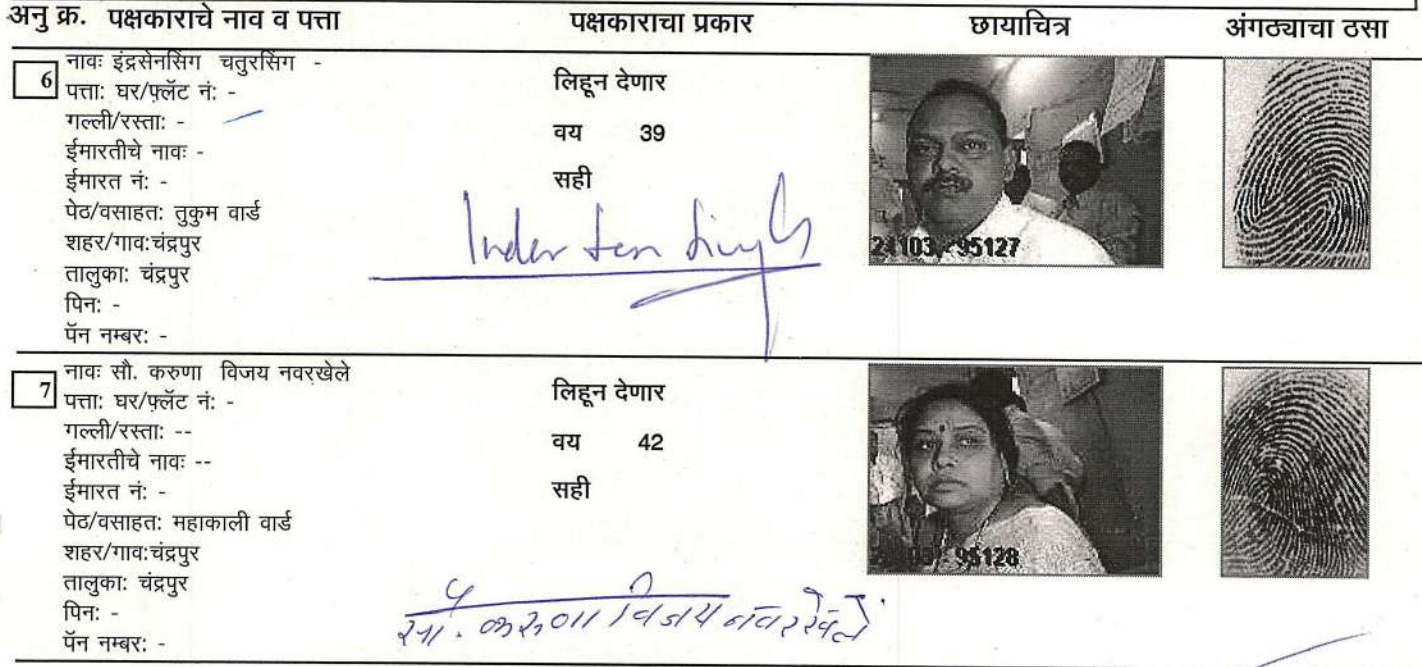 अनु क्र. पक्षकाराचे नाव व पत्ता पक्षकाराचा प्रकार छायाचित्र अंगठ्याचा ठसा
6 नावः इंद्रसेनसिंग चतुरसिंग -
पत्ता: घर/फ़्लॅट नं: -
गल्ली/रस्ता: -
ईमारतीचे नावः -
ईमारत नं: -
पेठ/वसाहत: तुकुम वार्ड
शहर/गाव:चंद्रपुर
तालुका: चंद्रपुर
पिन: -
पॅन नम्बर: -
लिहून देणार
वय 39
सही
Inder Sen Singh
24103, 95127
7 नावः सौ. करुणा विजय नवरखेले
पत्ता: घर/फ़्लॅट नं: -
गल्ली/रस्ता: --
ईमारतीचे नावः --
ईमारत नं: -
पेठ/वसाहत: महाकाली वार्ड
शहर/गाव:चंद्रपुर
तालुका: चंद्रपुर
पिन: -
पॅन नम्बर: -
लिहून देणार
वय 42
सही
सौ. करुणा विजय नवरखेले
95128